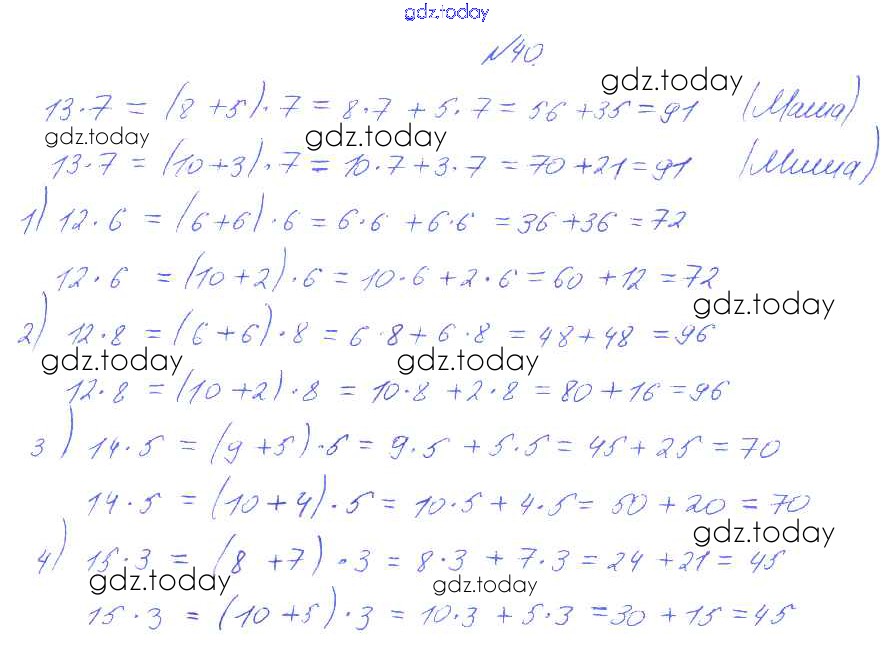 gdz.today
№40.
gdz.today
13·7 = (8+5)·7 = 8·7 + 5·7 = 56 + 35 = 91 (Маша)
gdz.today gdz.today
13·7 = (10+3)·7 = 10·7 + 3·7 = 70 + 21 = 91 (Миша)
1) 12·6 = (6+6)·6 = 6·6 + 6·6 = 36 + 36 = 72
12·6 = (10+2)·6 = 10·6 + 2·6 = 60 + 12 = 72
gdz.today
2) 12·8 = (6+6)·8 = 6·8 + 6·8 = 48 + 48 = 96
gdz.today gdz.today
12·8 = (10+2)·8 = 10·8 + 2·8 = 80 + 16 = 96
3) 14·5 = (9+5)·5 = 9·5 + 5·5 = 45 + 25 = 70
14·5 = (10+4)·5 = 10·5 + 4·5 = 50 + 20 = 70
gdz.today
4) 15·3 = (8+7)·3 = 8·3 + 7·3 = 24 + 21 = 45
gdz.today gdz.today
15·3 = (10+5)·3 = 10·3 + 5·3 = 30 + 15 = 45